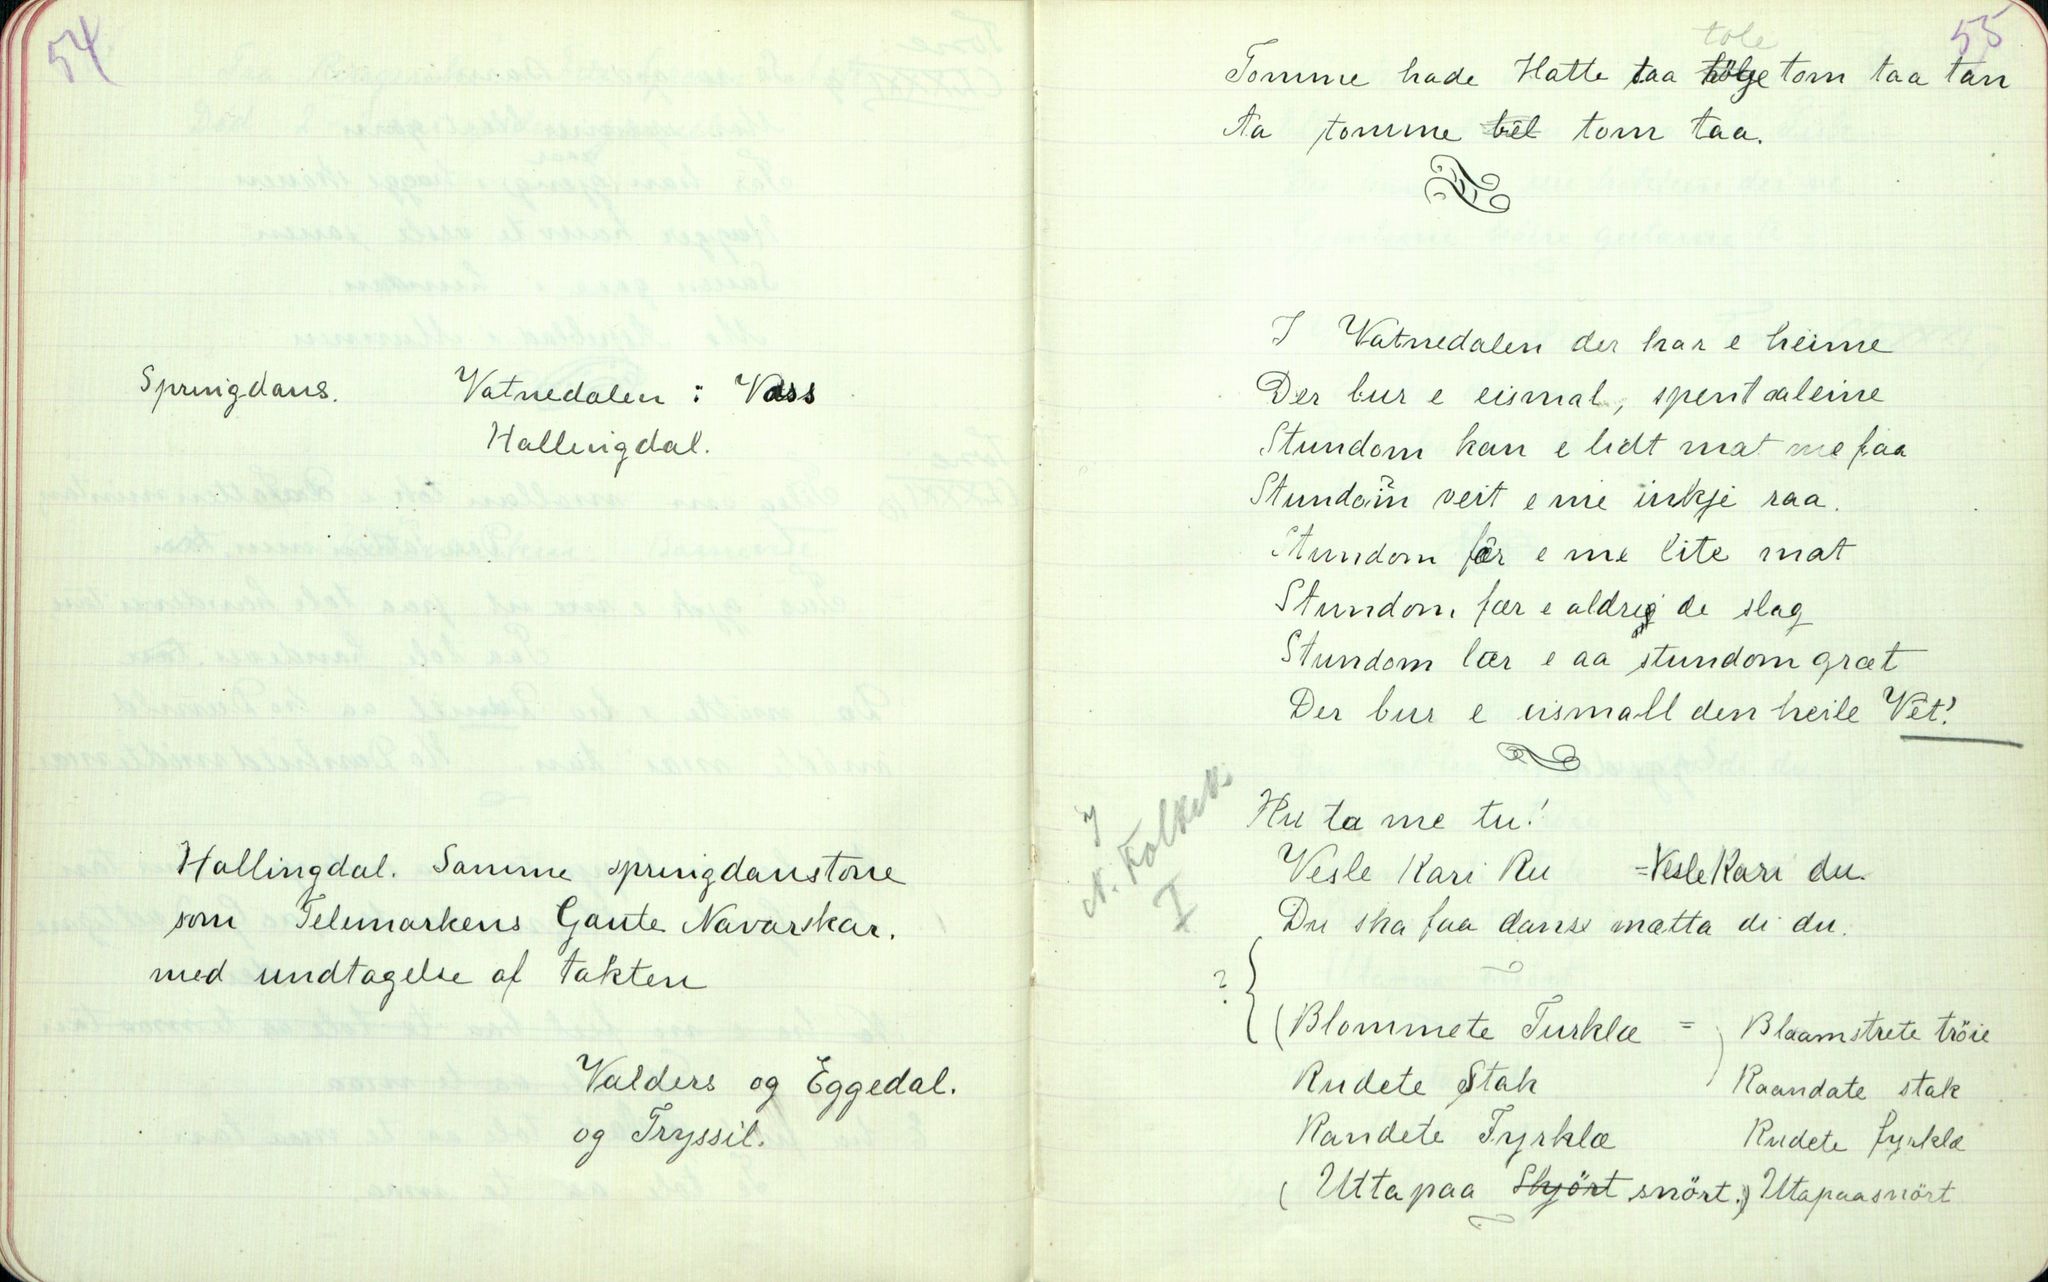 54
Springdans. Vatnedalen i Voss
Hallingdal.
Hallingdal. Samme springdanstone
som Telemarkens Gaute Navarskar.
med undtagelse af takten
Valders og Eggedal.
og Tryssil.
55
tole
Tomme hade Hatte taa tölge tom taa tan
Aa tomme tel tom taa.
I Vatnedalen der har e heime
Der bur e eismal, spent aaleine
Stundom kan e lidt mat me faa
Stundom veit e me inkje raa.
Stundom fær e me lite mat
Stundom fær e aldrig de slag
Stundom lær e aa stundom græt
Der bur e eismall den heile Vet!
Hu ta me tu!
Vesle Kari Ru =Vesle Kari du.
Du ska faa danse mætta di du.
i
N. Folkek.
I
? { (Blommete Turklæ = ) Blaamstrete tröie
Rudete Stak Raandate stak
Randete Fyrklæ Rudete fyrklæ
(Utta paa Skjört snört.) Utapaasnört